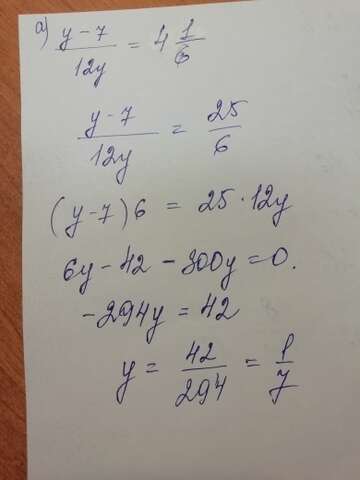 a) y - 7 / 12y = 4 1/6
y - 7 / 12y = 25 / 6
(y - 7) 6 = 25 · 12y
6y - 42 - 300y = 0.
- 294y = 42
y = 42 / 294 = 1 / 7